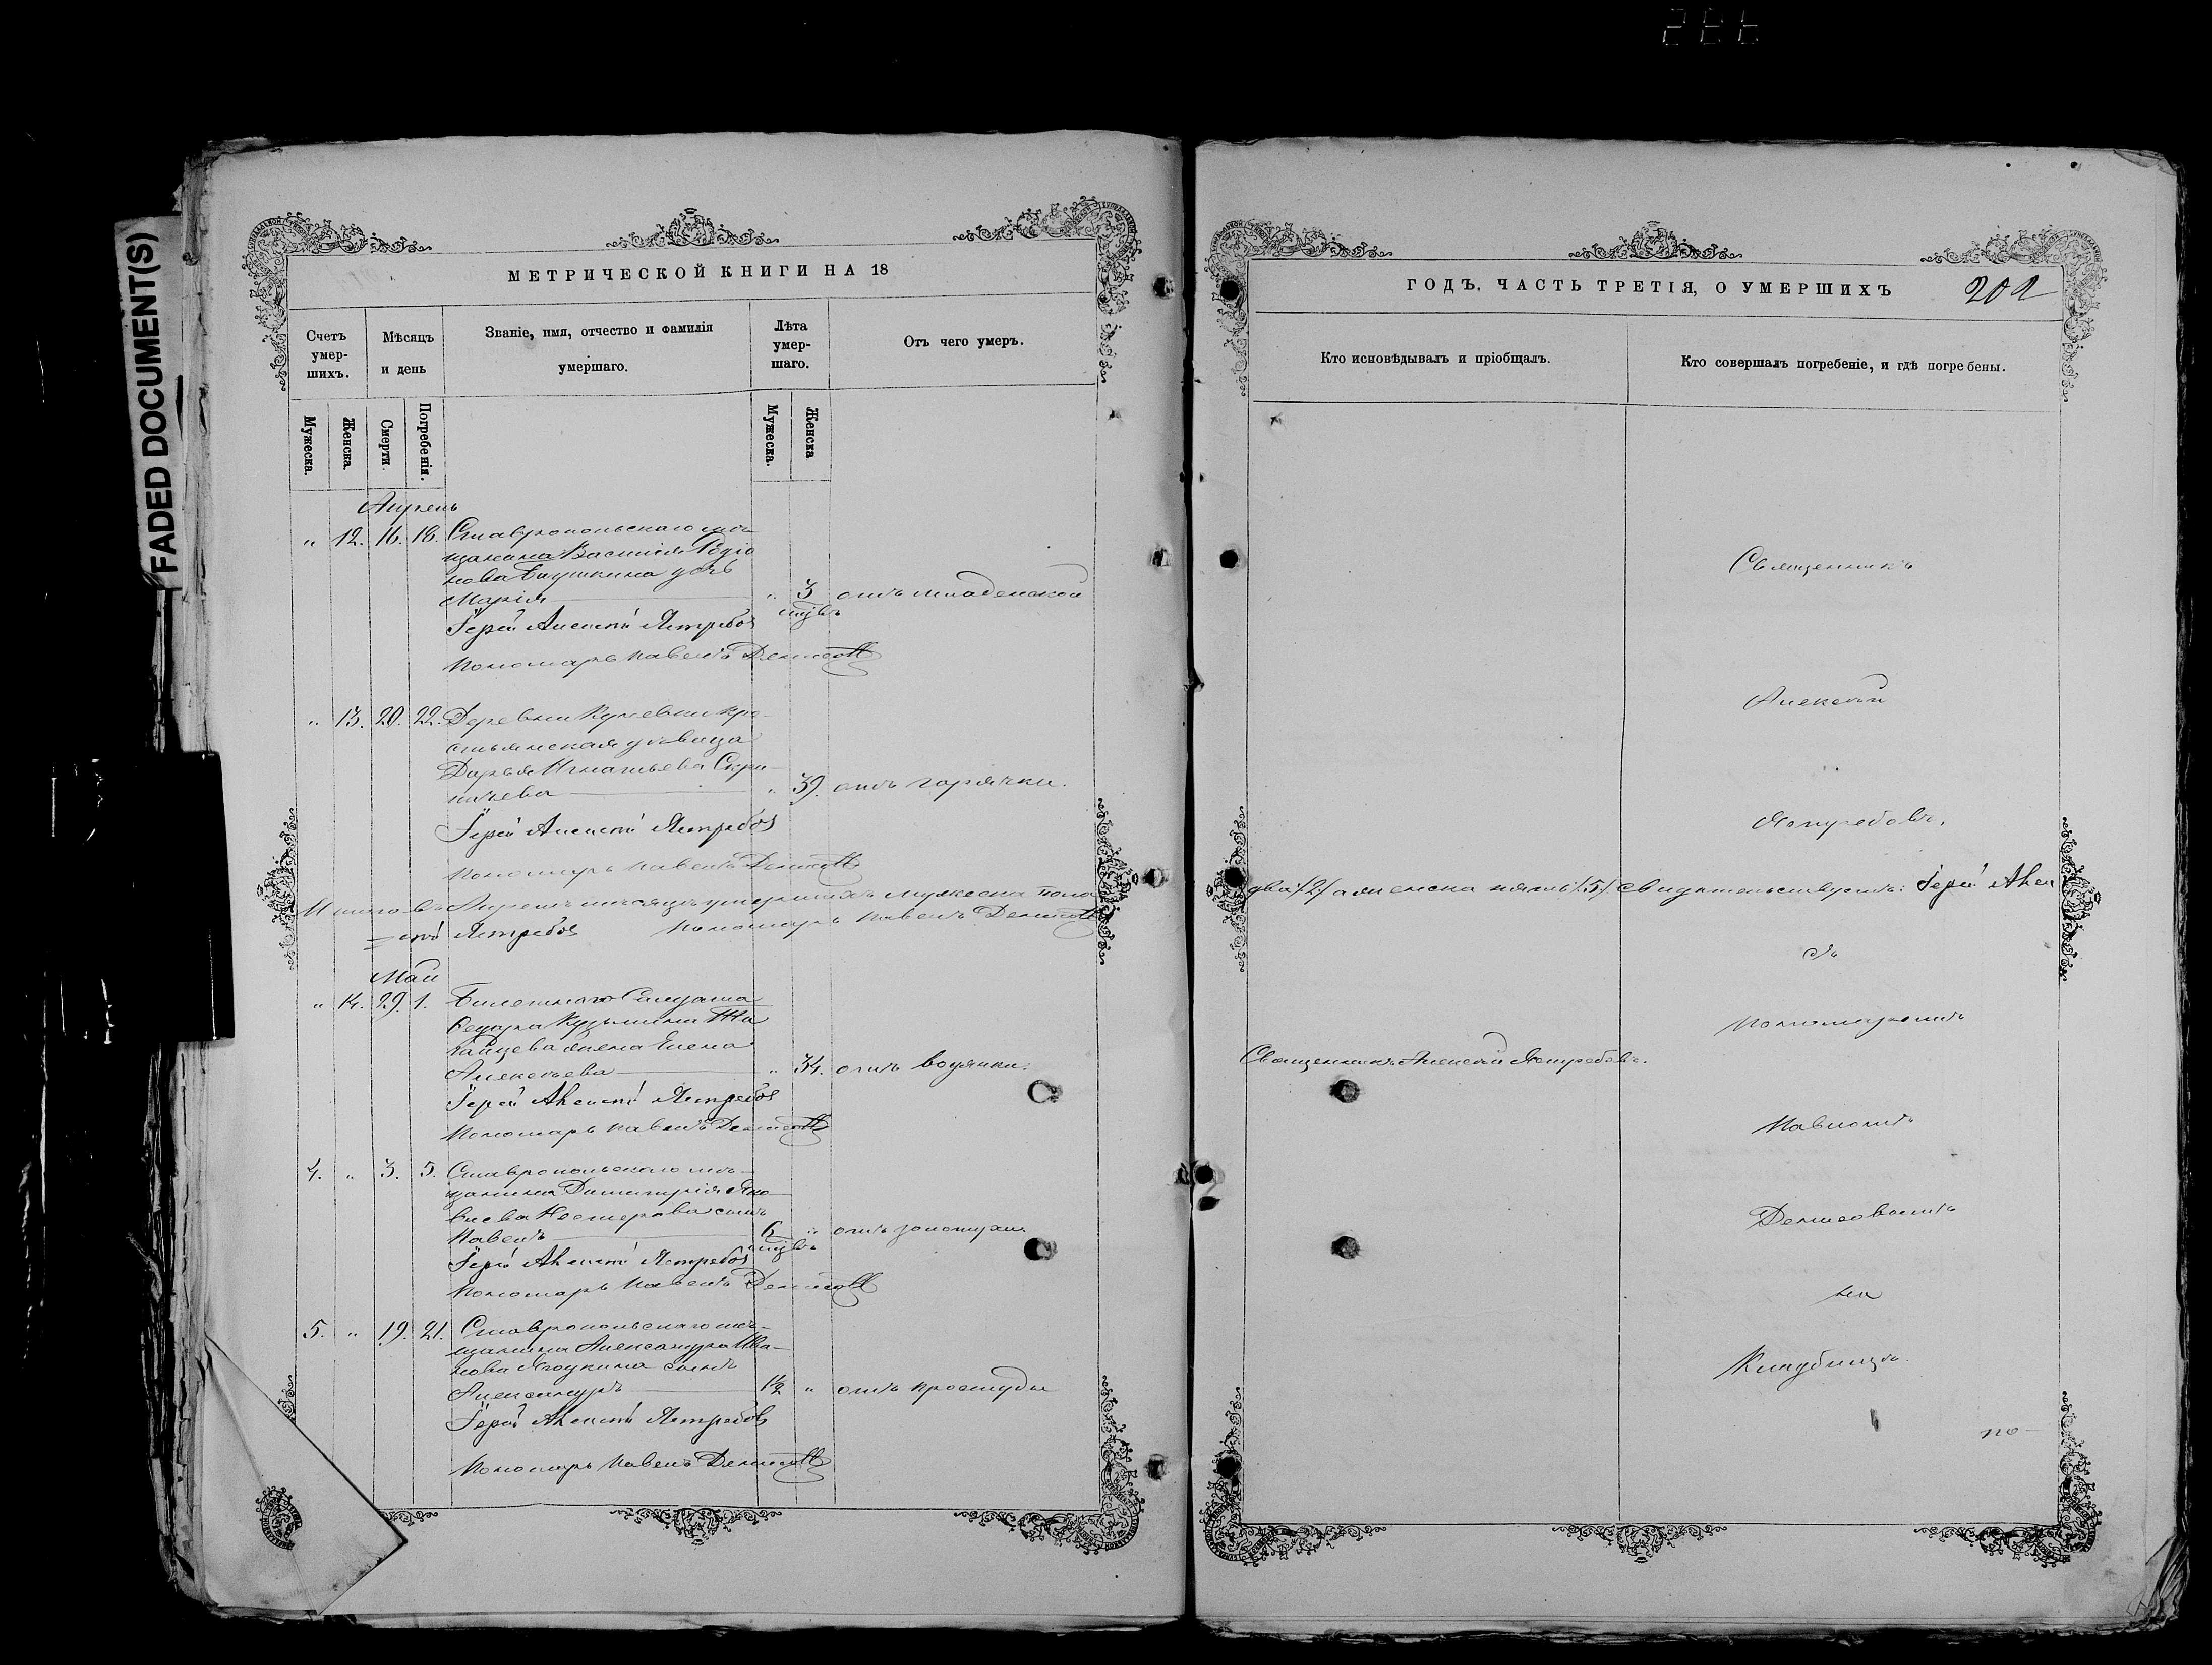 FADED DOCUMENT(S)
МЕТРИЧЕСКОЙ КНИГИ НА 18
Счетъ умер-шихъ.
Мѣсяцъ и день
Званіе, имя, отчество и фамилія умершаго.
Лѣта умер-шаго.
Отъ чего умеръ.
Мужеска.
Женска.
Смерти.
Погребенія.
Мужеска.
Женска
Апрель
„ 12. 16. 18. Ставропольскаго мѣ-
щанина Василія Родіо
нова дочь
Марія „ 3 отъ младенской
Іерей Алексѣй Ястребовъ мѣс.
Пономарь Павелъ Денисовъ
„ 13. 20. 22. Деревни кре-
стьянская дѣвица
Дарья Игнатьева
„ 39. отъ горячки.
Іерей Алексѣй Ястребовъ
Пономарь Павелъ Денисовъ
Итого въ Апрелѣ мѣсяцѣ умершихъ мужеска пола
сѣй Ястребовъ Пономарь Павелъ Денисовъ
Май
„ 14. 29. 1. Билетнаго Солдата
Кузьмина
жена Елена
Алексѣева „ 34. отъ водянки.
Іерей Алексѣй Ястребовъ
Пономарь Павелъ Денисовъ
4. „ 3. 5. Ставропольскаго мѣ-
щанина Димитрія Яко-
влева Нестерова сынъ
Павелъ 6 „ отъ золотухи.
Іерей Алексѣй Ястребовъ мѣс.
Пономарь Павелъ Денисовъ
5. „ 19. 21. Ставропольскаго мѣ-
щанина Александра Ива-
нова сынъ
Александръ 1½ „ отъ простуды
Іерей Алексѣй Ястребовъ
Пономарь Павелъ Денисовъ
ГОДЪ. ЧАСТЬ ТРЕТІЯ, О УМЕРШИХЪ
202
Кто исповѣдывалъ и пріобщалъ.
Кто совершалъ погребеніе, и гдѣ погребены.
Священникъ
Алексѣй
Ястребовъ,
два /2/ а женска пять /5/ свидѣтельствуетъ: Іерей Алек
съ
пономаремъ
Священникъ Алексѣй Ястребовъ.
Павломъ
Денисовымъ
на
Кладбищѣ.
по-